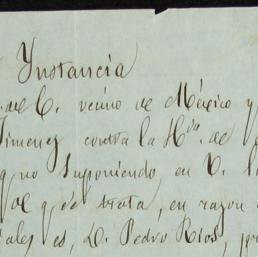 Instancia
de C. vecino de México y
Jimenez contra la Hda. de
q. no suponiendo en D. l
de q. se trata, en razon
ales es, D. Pedro Rios, p